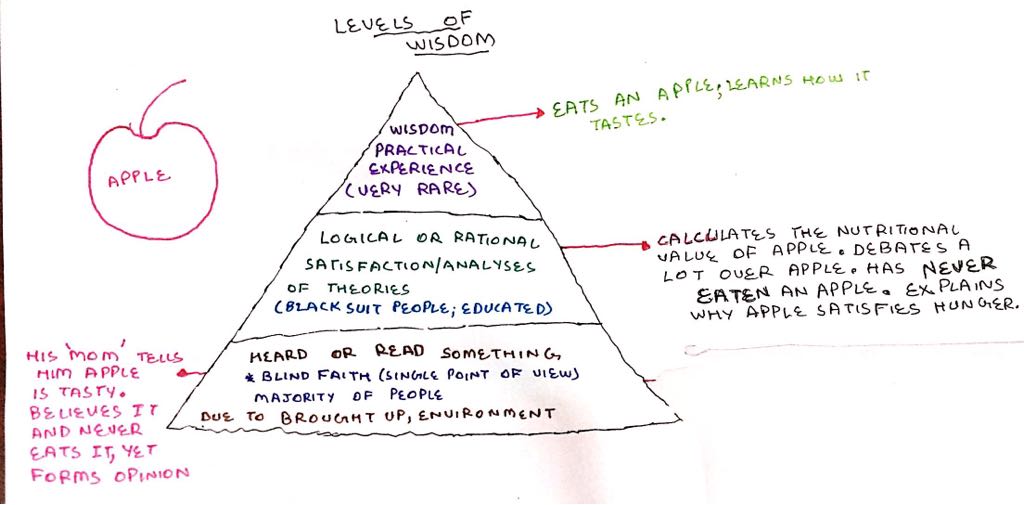 LEVELS OF
WISDOM
APPLE
WISDOM
PRACTICAL
EXPERIENCE
(VERY RARE)
EATS AN APPLE; LEARNS HOW IT
TASTES.
LOGICAL OR RATIONAL
SATISFACTION/ANALYSES
OF THEORIES
(BLACK SUIT PEOPLE; EDUCATED)
CALCULATES THE NUTRITIONAL
VALUE OF APPLE. DEBATES A
LOT OVER APPLE. HAS NEVER
EATEN AN APPLE. EXPLAINS
WHY APPLE SATISFIES HUNGER.
HEARD OR READ SOMETHING,
* BLIND FAITH (SINGLE POINT OF VIEW)
MAJORITY OF PEOPLE
DUE TO BROUGHT UP, ENVIRONMENT
HIS 'MOM' TELLS
HIM APPLE
IS TASTY.
BELIEVES IT
AND NEVER
EATS IT, YET
FORMS OPINION